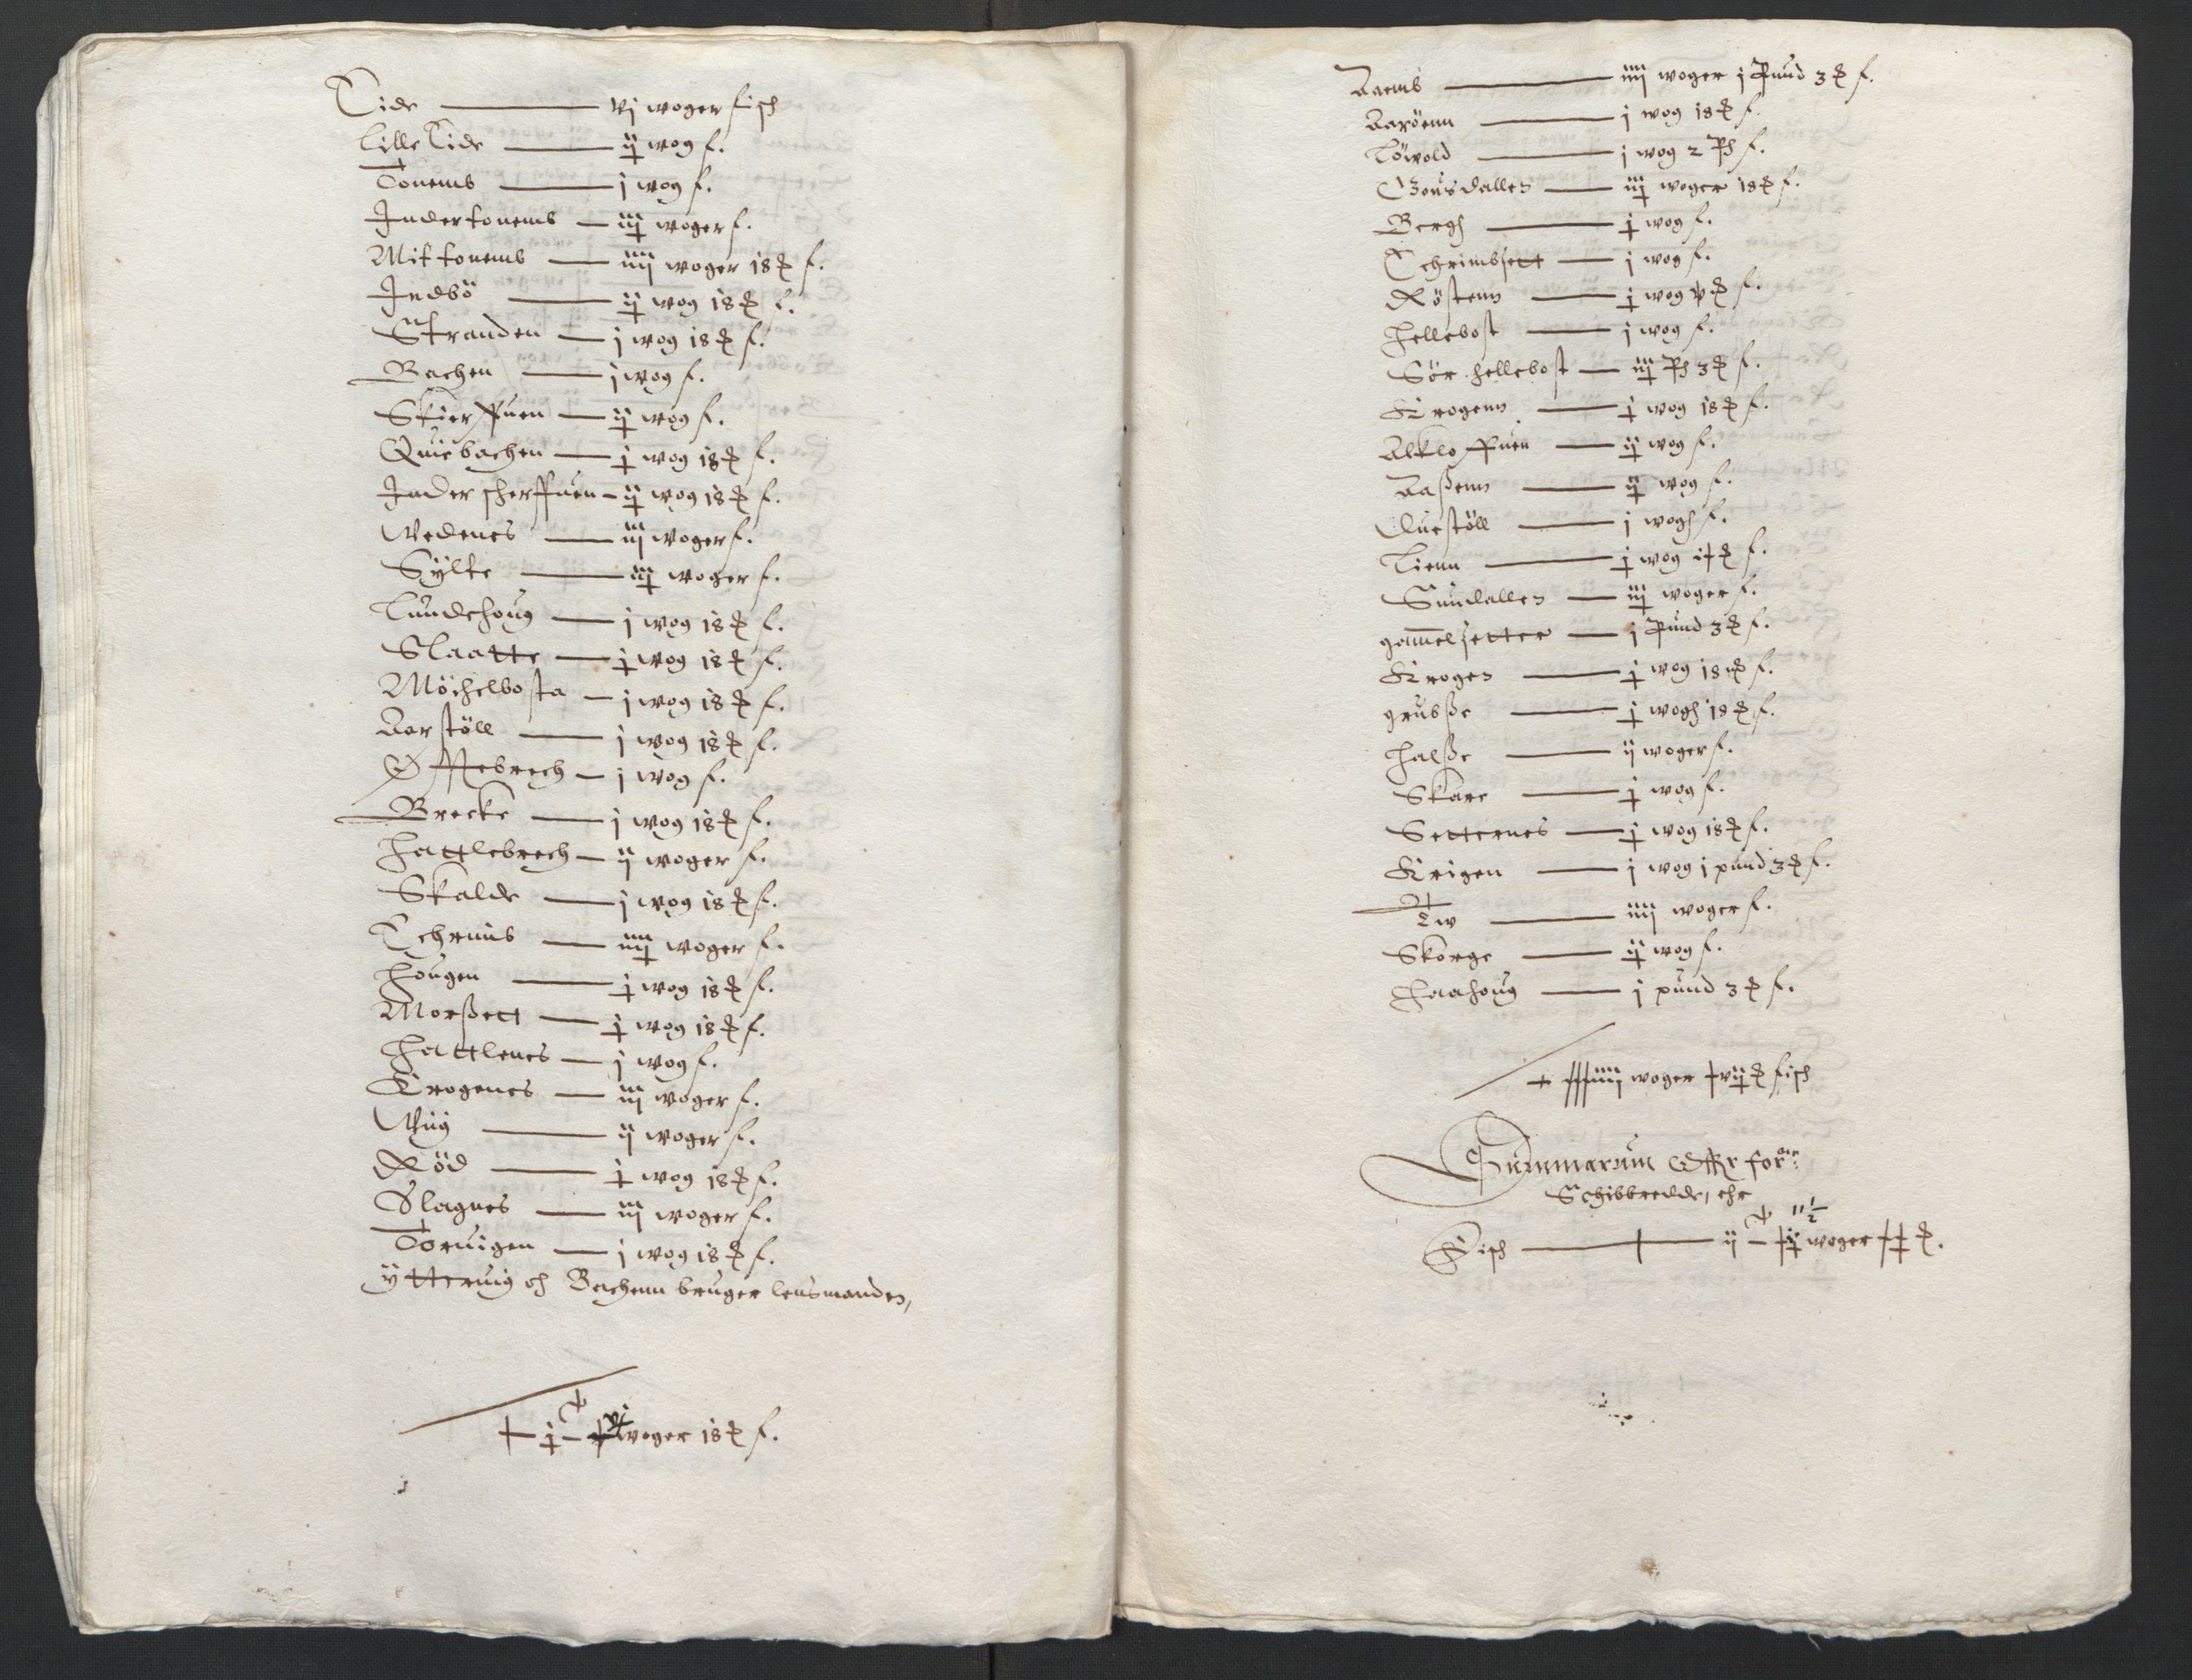 Eide —— vj woger fisch
Lille Eide —— ij wog f.
Tonems —— j wog f.
Indertonems — iij woger f.
Mittonems — iiij woger 18 ℔ f.
Indbö —— ij wog 18 ℔ f.
Stranden — j wog 18 ℔ f.
Bachen —— j wog f.
Skierffuen — ij wog f.
Quiebachen — j wog 18 ℔ f.
Inderscherffuen — ij wog 18 ℔ f.
Nedenes —— iij woger f.
Sÿlte —— iij woger f.
Lundehoug — j wog 18 ℔ f.
Slaatte — j wog 18 ℔ f.
Möchelbosta — j wog 18 ℔ f.
Aarstöll —— j wog 18 ℔ f.
Offtebrech — j wog f.
Brecke —— j wog 18 ℔ f.
Hattlebrech — ij woger f.
Skalde —— j wog 18 ℔ f.
— iiij woger f.
Hougen —— j wog 18 ℔ f.
Morßett — j wog 18 ℔ f.
Hattlenes — j wog f.
Krogenes — iij woger f.
—— ij woger f.
Röd —— j wog 18 ℔ f.
Slagnes — iij woger f.
Toruigen — j wog 18 ℔ f.
ÿtteruig och Bachenn bruger lensmanden,
woger 18 ℔ f.
Aaems —— iiij woger j Pund 3 ℔ f.
Aaröenn —— j wog 18 ℔ f.
Löwold —— j wog 2 Pd f.
Gousdallen — iij woger 18 ℔ f.
Bergh —— j wog f.
— j wog f.
Röstenn —— j wog v ℔ f.
Hellebost —— j wog f.
Sör hellebost — iij Pd 3 ℔ f.
Krogenn —— j wog 18 ℔ f.
Alkloffuen — ij wog f.
Aaßenn —— ij wog f.
Questöll —— j wogh f.
Lienn —— j wog ℔ f.
Sundallen — iij woger f.
gammelsetter — j Pund 3 ℔ f.
Krogen —— j wog 18 ℔ f.
grubße —— j wogh 18 ℔ f.
Halße —— ij woger f.
Skare —— j wog f.
Setternes — j wog 18 ℔ f.
Krigen —— j wog j pund 3 ℔ f.
Tw —— iiij woger f.
Skorge —— ij wog f.
Haahoug — j pund 3 ℔ f.
woger ℔ fisch
Summarum
Schibbredde, ehr
Fisch —— woger ℔.